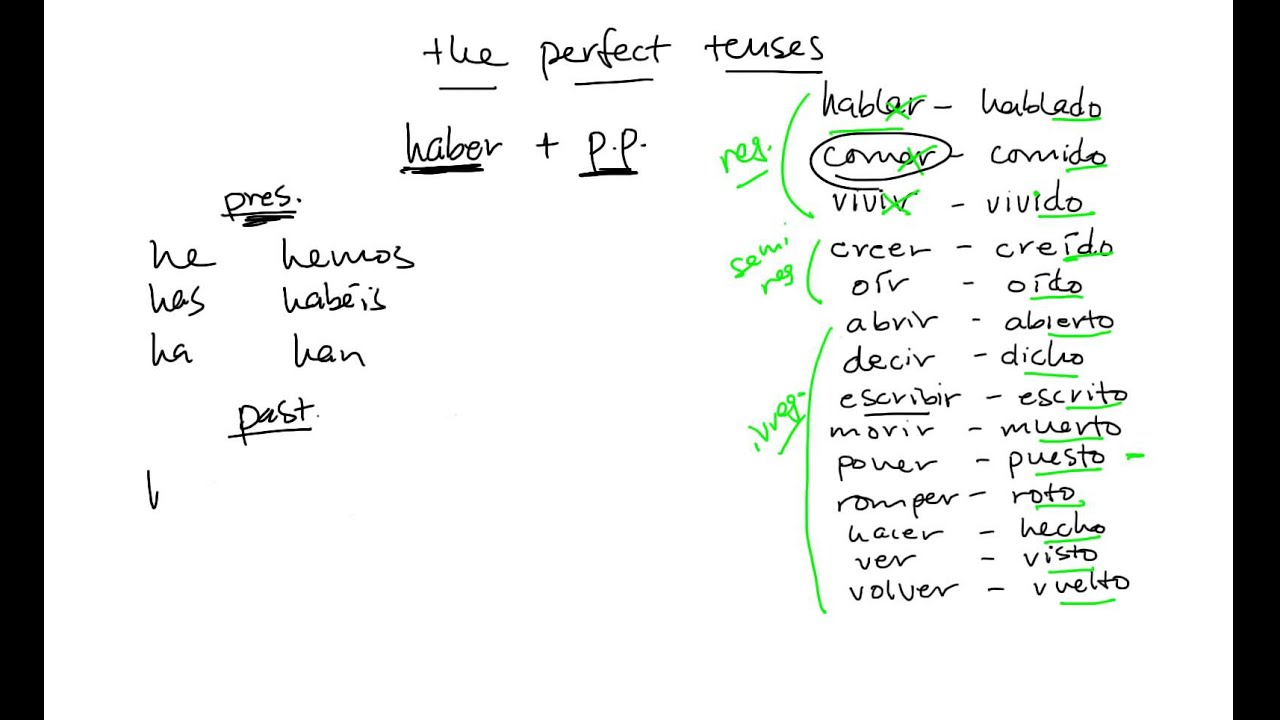 the perfect tenses
haber + p.p.
pres.
he hemos
has habéis
ha han
past.
h
reg.
hablar - hablado
comer - comido
vivir - vivido
semi
reg
creer - creído
oír - oído
irreg.
abrir - abierto
decir - dicho
escribir - escrito
morir - muerto
poner - puesto -
romper - roto
hacer - hecho
ver - visto
volver - vuelto